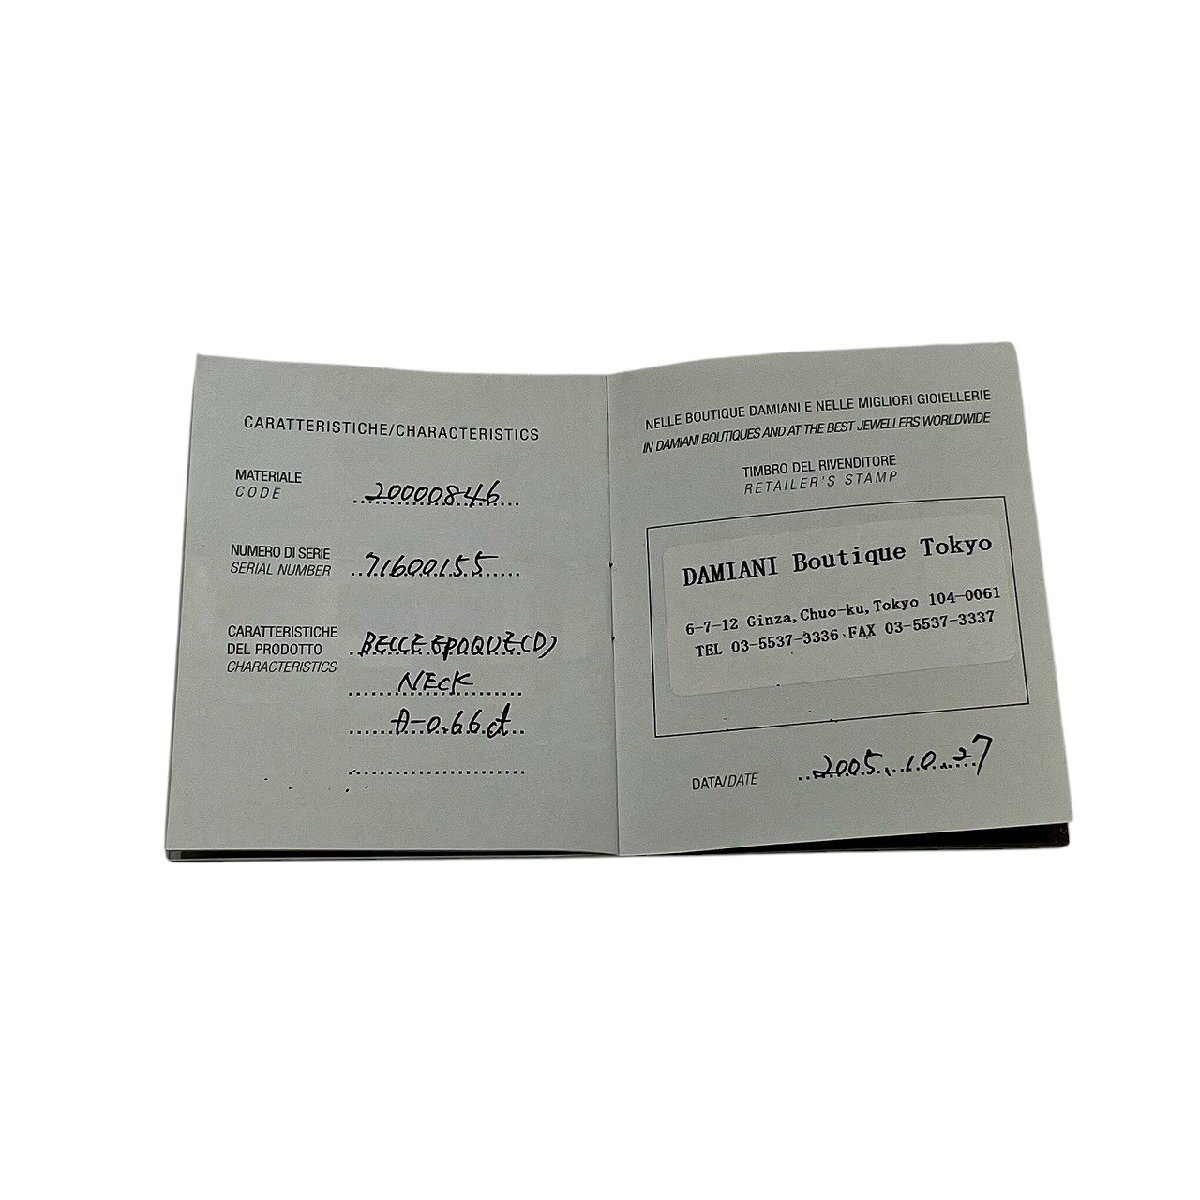 CARATTERISTICHE/CHARACTERISTICS
MATERIALE
CODE
20000846
NUMERO DI SERIE
SERIAL NUMBER
71600155
CARATTERISTICHE
DEL PRODOTTO
CHARACTERISTICS
BELLE EPOQUE(D)
NECK
D-0.66ct
NELLE BOUTIQUE DAMIANI E NELLE MIGLIORI GIOIELLERIE
IN DAMIANI BOUTIQUES AND AT THE BEST JEWELLERS WORLDWIDE
TIMBRO DEL RIVENDITORE
RETAILER'S STAMP
DAMIANI Boutique Tokyo
6-7-12 Ginza, Chuo-ku, Tokyo 104-0061
TEL 03-5537-3336 FAX 03-5537-3337
DATA/DATE
2005.10.27